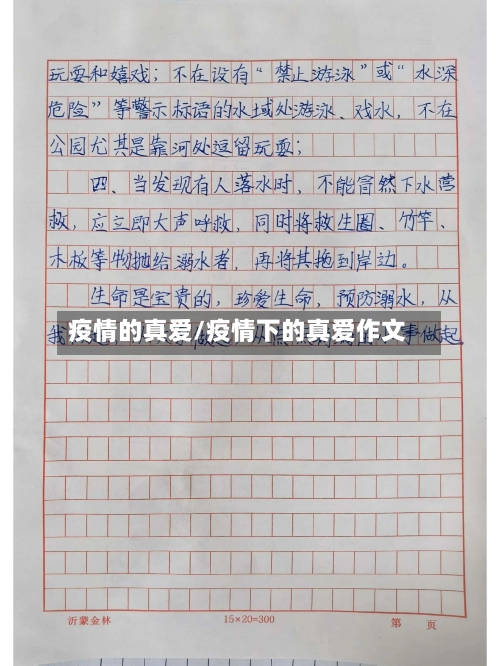 玩耍和嬉戏；不在设有“禁止游泳”或“水深
危险”等警示标语的水域处游泳、戏水，不在
公园尤其是靠河处逗留玩耍；
四、当发现有人落水时，不能冒然下水营
救，应立即大声呼救，同时将救生圈、竹竿、
木板等物抛给溺水者，再将其拖到岸边。
生命是宝贵的，珍爱生命，预防溺水，从
疫情的真爱/疫情下的真爱作文
我 事做起
沂蒙金林 15×20=300 第 页